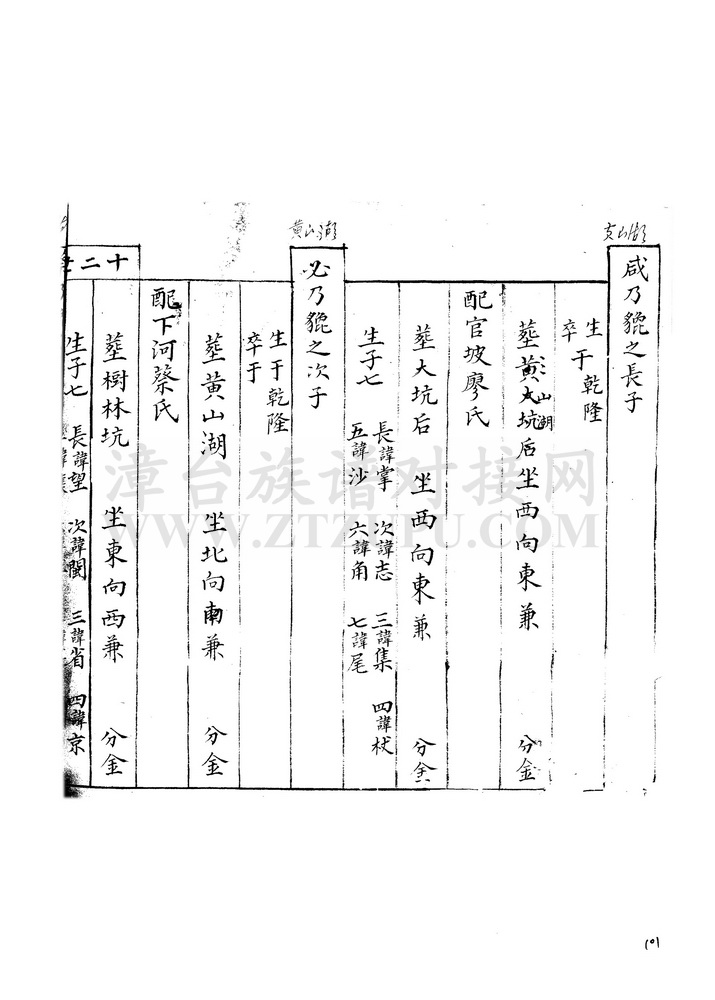 黄山湖
咸乃貔之長子
生于乾隆
卒于
葬黄大坑后坐西向東兼 分金
山湖
配官坡廖氏
葬大坑后 坐西向東兼 分金
生子七 長諱掌 次諱志 三諱集 四諱杖
五諱沙 六諱角 七諱尾
黄山湖
必乃貔之次子
生于乾隆
卒于
葬黄山湖 坐北向南兼 分金
配下河蔡氏
十二
葬樹林坑 坐東向西兼 分金
生子七 長諱望 次諱閩 三諱省 四諱京
漳台族谱对接网
WWW.ZTZUPU.COM
101